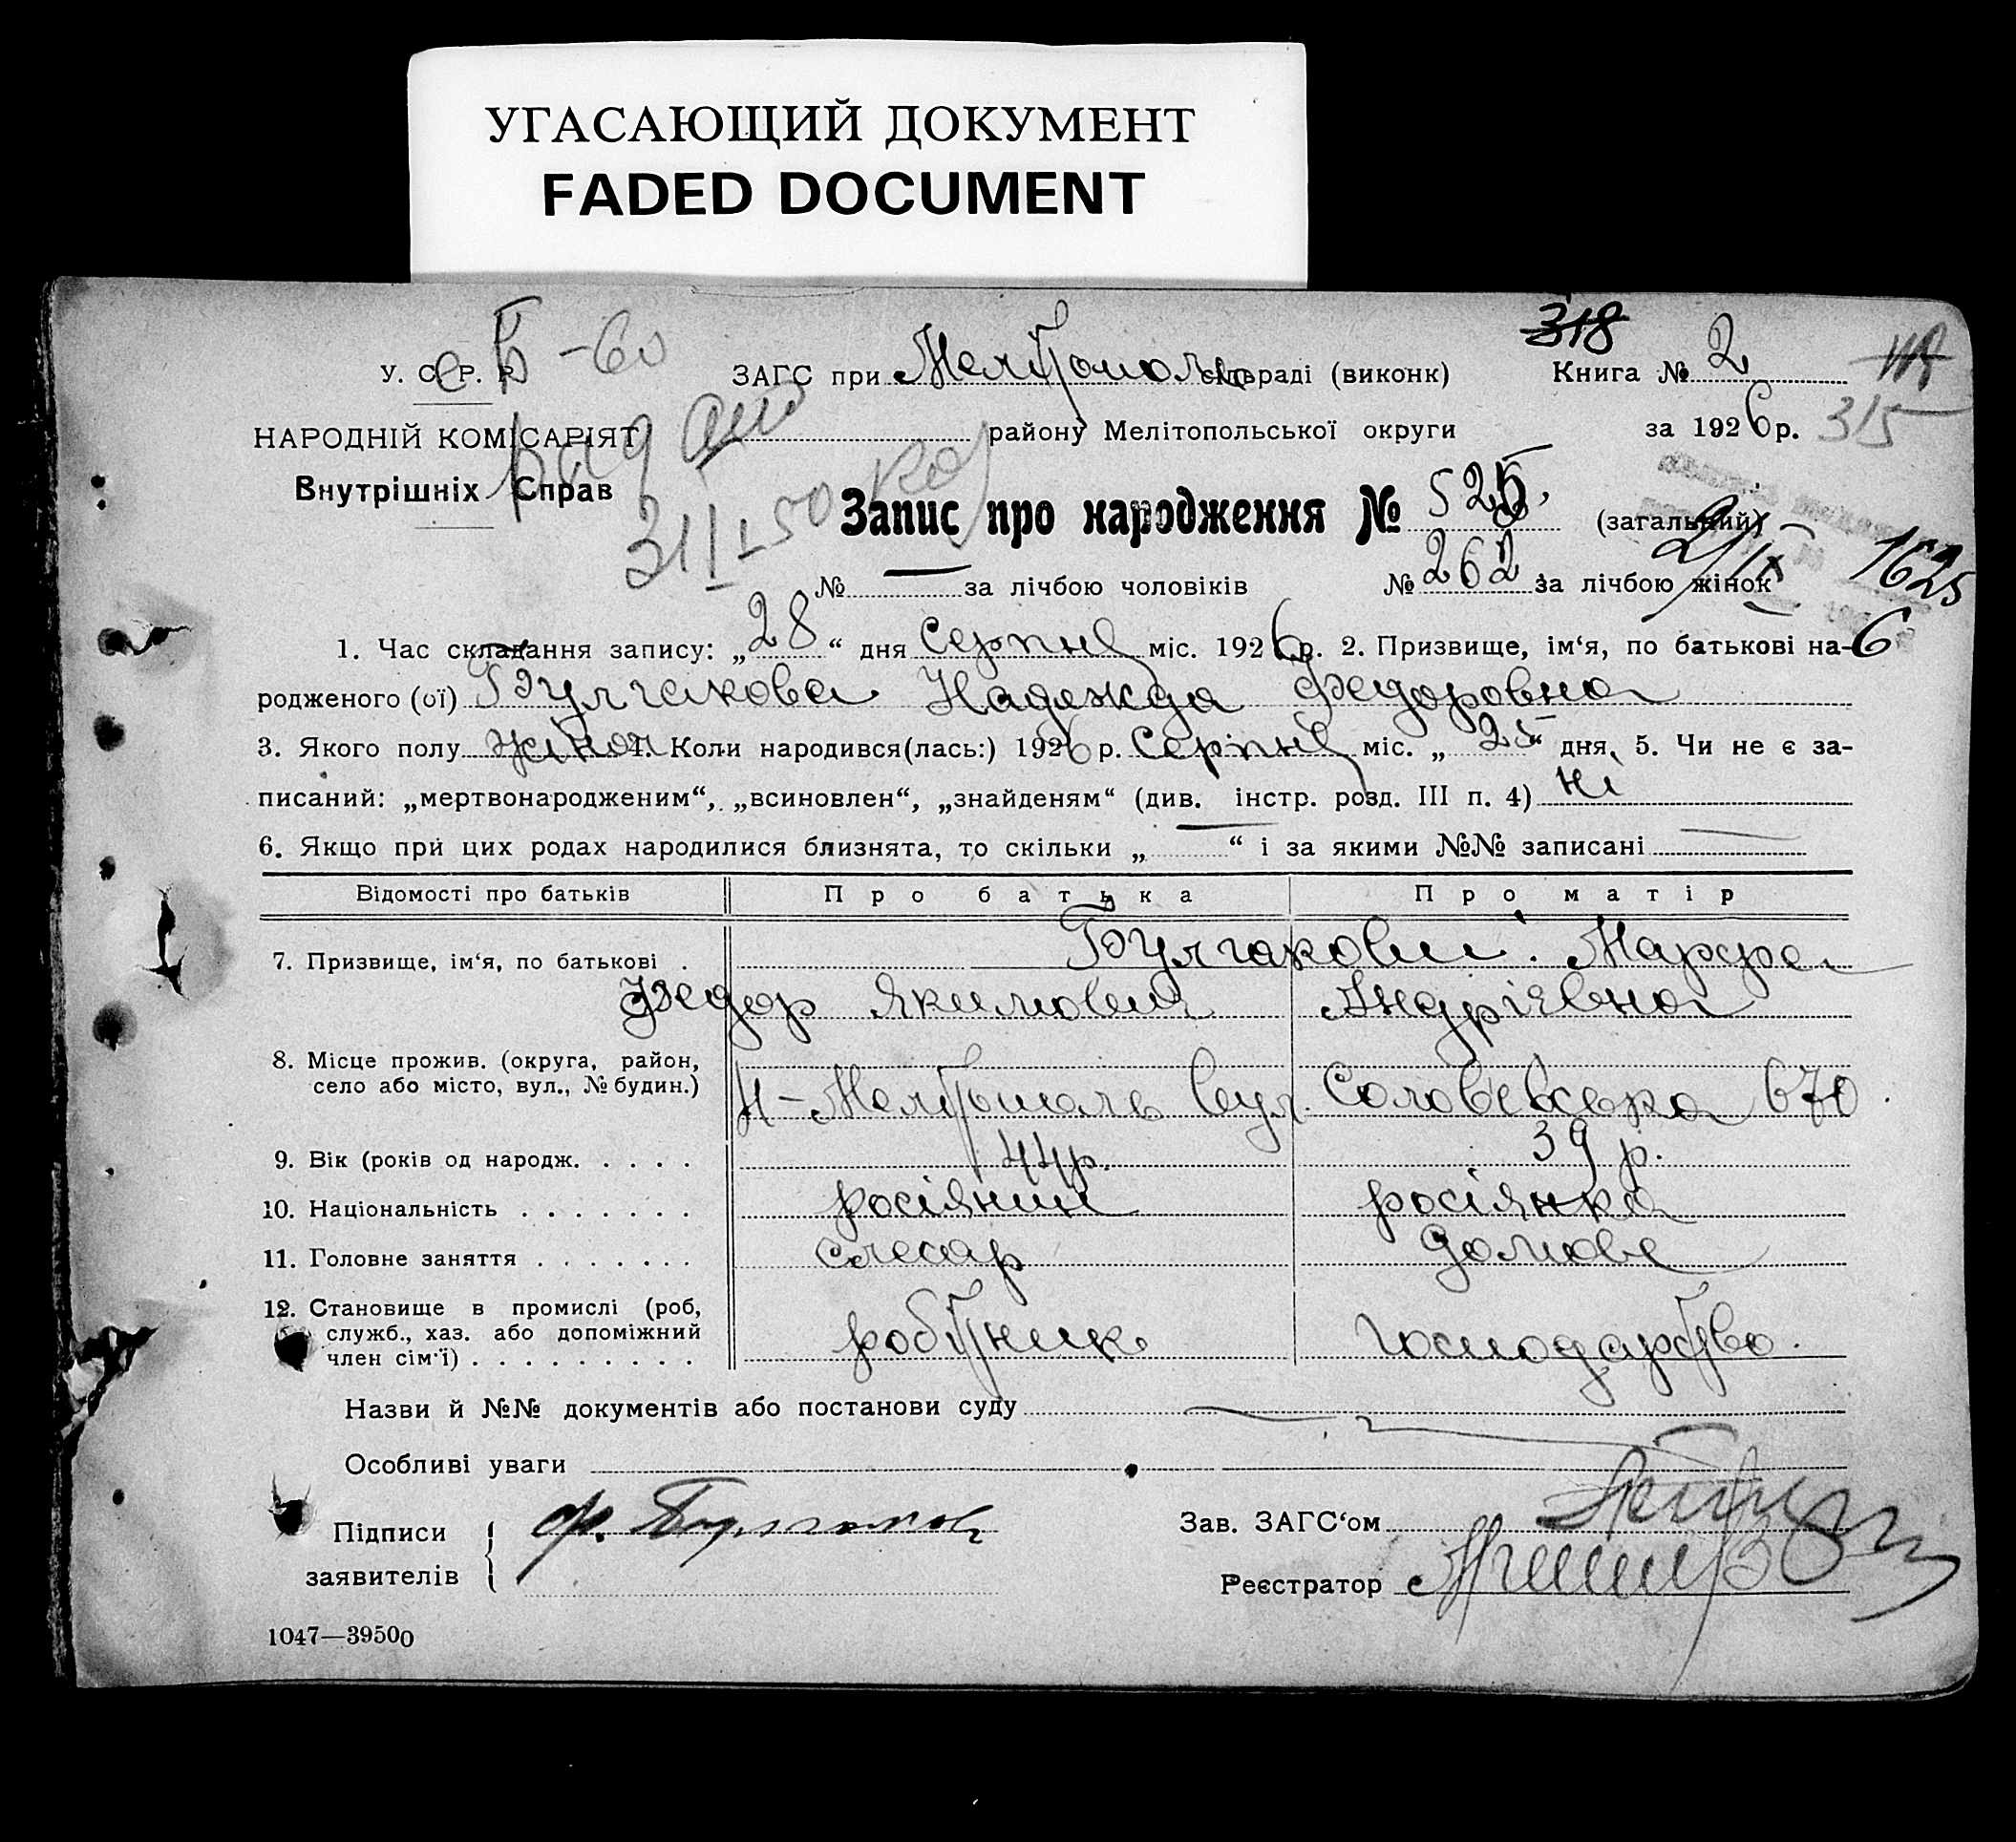 УГАСАЮЩИЙ ДОКУМЕНТ
FADED DOCUMENT
318
У. С. Р. Р. ЗАГС при Мелітополь сільраді (виконк) Книга № 2
НАРОДНІЙ КОМІСАРІЯТ району Мелітопольської округи за 1926 р. 315
Внутрішніх Справ
Запис про народження № 525 (загальний)
№ — за лічбою чоловіків № 262 за лічбою жінок 1625
1. Час складання запису: „28“ дня Серпня міс. 1926 р. 2. Призвище, ім‘я, по батькові на- 6
родженого (ої) Булгакова Надежда Федоровна
3. Якого полу жіноч 4. Коли народився(лась:) 1926 р. Серпня міс. „25“ дня, 5. Чи не є за-
писаний: „мертвонародженим“, „всиновлен“, „знайденям“ (див. інстр. розд. III п. 4) ні
6. Якщо при цих родах народилися близнята, то скільки „—“ і за якими №№ записані —
Відомості про батьків Про батька Про матір
7. Призвище, ім‘я, по батькові . Булгакови. Марфа
Федор Якимович Андріївна
8. Місце прожив. (округа, район,
село або місто, вул., № будин.) Н-Мелітополь вул. 670
9. Вік (років од народж. . . . . 44 р. 39 р.
10. Національність . . . . . . . росіянин росіянка
11. Головне заняття . . . . . . . слесар домове
12. Становище в промислі (роб,
служб., хаз. або допоміжний
член сім‘ї) . . . . . . . . . робітник господарство.
Назви й №№ документів або постанови суду —
Особливі уваги
Підписи ф. Булгаков Зав. ЗАГС‘ом
заявителів Реєстратор
1047—39500